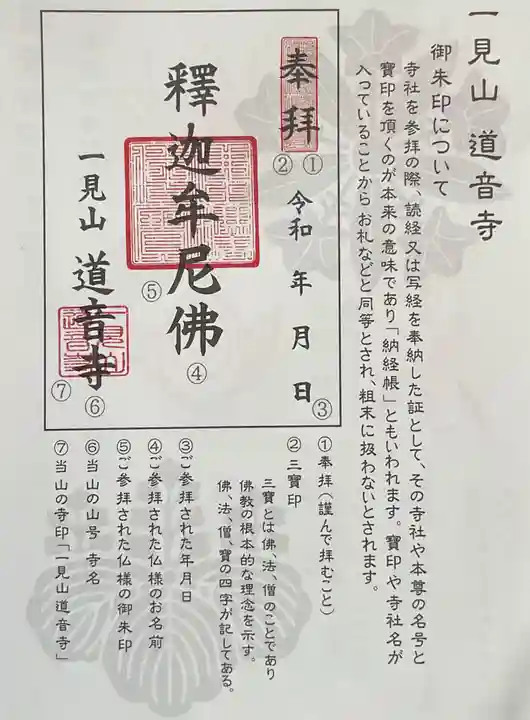 一見山 道音寺
御朱印について
寺社を参拝の際、読経又は写経を奉納した証として、その寺社や本尊の名号と
寶印を頂くのが本来の意味であり「納経帳」ともいわれます。寶印や寺社名が
入っていることから お札などと同等とされ、粗末に扱わないとされます。
奉拝
②①
令和 年 月 日
③
釋迦牟尼佛
④
⑤
一見山 道音寺
⑥
⑦
①奉拝(謹んで拝むこと)
②三寶印
三寶とは佛、法、僧のことであり
佛教の根本的な理念を示す。
佛、法、僧、寶の四字が記してある。
③ご参拝された年月日
④ご参拝された仏様のお名前
⑤ご参拝された仏様の御朱印
⑥当山の山号 寺名
⑦当山の寺印「一見山道音寺」